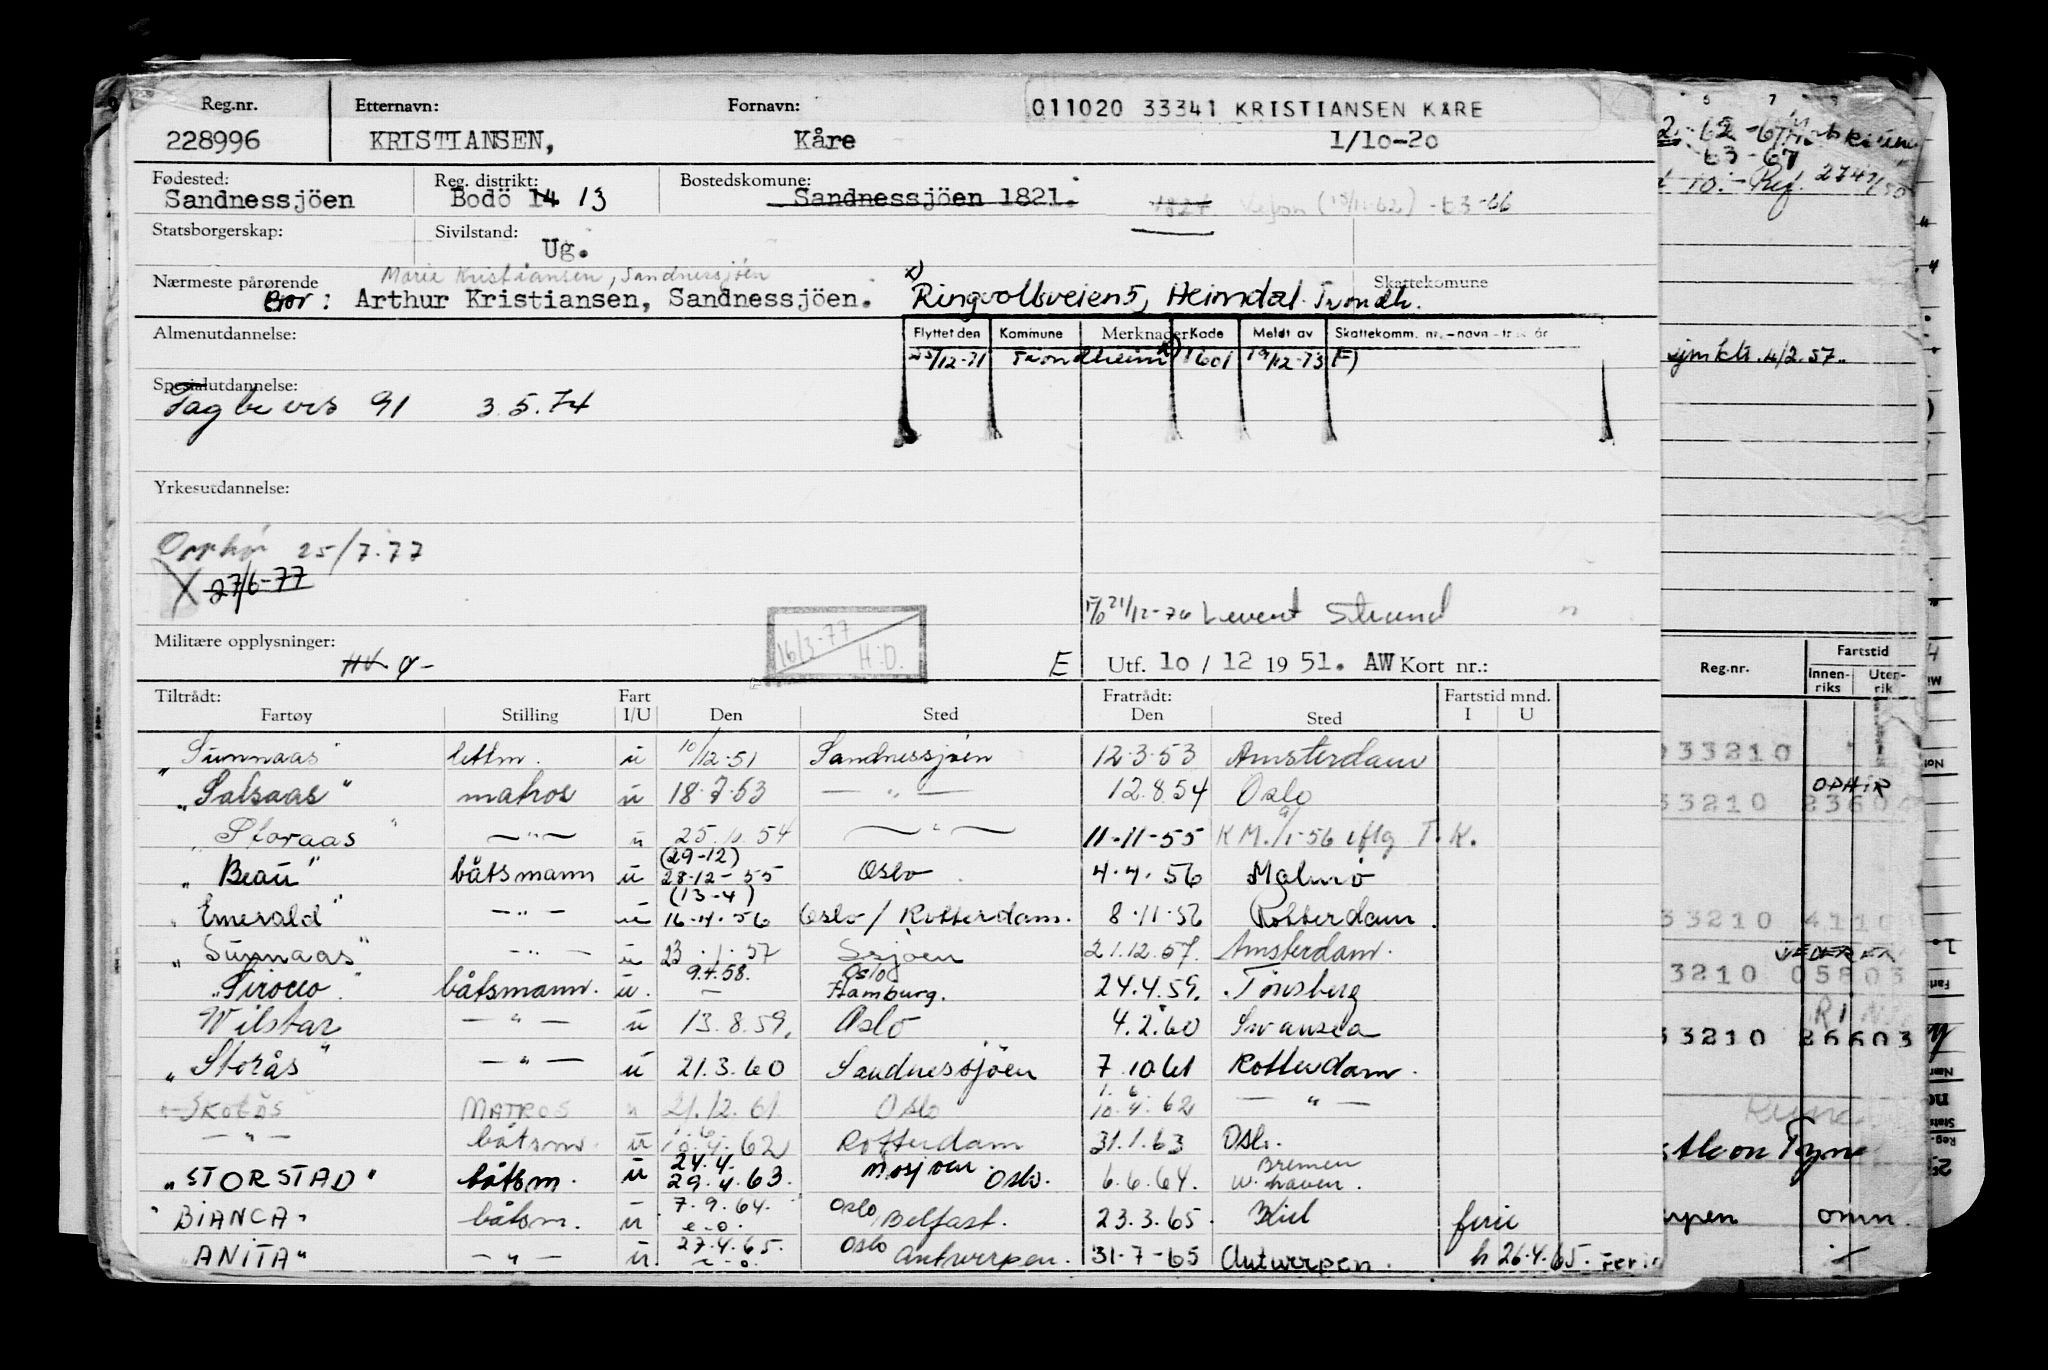 Reg.nr. Etternavn: Fornavn: 011020 33341 KRISTIANSEN KARE
228996 KRISTIANSEN, Kåre 1/10-20
Fødested: Reg. distrikt: Bostedskomune:
Sandnessjöen Bodö 14 13 Sandnessjöen 1821. 1827 (15/11-62) -63-66
Statsborgerskap: Sivilstand:
Ug.
Marie Kristiansen, Sandnessjöen
Nærmeste pårørende x) Skattekomune
Bor: Arthur Kristiansen, Sandnessjöen. Ringvollsveien 5, Heimdal. Trondh.
Almenutdannelse: Flyttet den Kommune Merknader Kode Meldt av Skattekomm. nr. - navn -
25/12-71 Trondheim x) 1601 19/12-73 F)
Spesialutdannelse:
Fagbevis 91 3.5.74
Yrkesutdannelse:
Opphør 25/7.77
X 27/6-77
21/12-76 Levert Strand "
Militære opplysninger: 16/3-77 H.D.
HV E Utf. 10 / 12 1951. AW Kort nr.:
Tiltrådt: Fart Fratrådt: Fartstid mnd.
Fartøy Stilling I/U Den Sted Den Sted I U
"Sunnaas" lettm. u 10/12-51 Sandnessjöen 12-3-53 Amsterdam
"Salsaas" matros u 18.7.53 — " — 12.8.54 Oslo
"Storaas" — " — u 25.10.54 — " — 11-11-55 K M. 9/1-56 iflg T.K.
(29-12)
"Beau" båtsmann u 28-12-55 Oslo 4.4.56 Malmö
(13-4)
"Emerald" — " — u 16.4.56 Oslo / Rotterdam. 8.11.56 Rotterdam.
"Sunnaas" — " — u 23.1.57 Ssjöen 21.12.57. Amsterdam.
9.4.58. Oslo
"Sirocco" båtsmann. u. — Hamburg. 24.4.59. Tönsberg
Wilstar — " — u 13.8.59. Oslo 4.2.60 Swansea
"Storås" — " — u 21.3.60 Sandnessjöen 7.10.61 Rotterdam.
1. 6.
Skotås MATROS u 21.12.61 Oslo 10.4.62 — " —
1.6.
— " — båtsm. u 10.4.62 Rotterdam 31.1.63 Oslo.
24.4. Mosjøen. Bremen
"STORSTAD" båtsm. u 29.4.63. Oslo. 6.6.64. W.haven.
7.9.64. Oslo
"BIANCA" båtsm. u e.o. Belfast. 23.3.65. Kiel ferie
27.4.65. Oslo
"ANITA" — " — u e.o. Antwerpen. 31-7-65 Antwerpen. h 26.4.65. Ferie
63-67
10.- Ref. 2747/50
4/2.57.
Reg.nr. Fartstid
Innenriks Utenriks
33210
OPHIR
33210 23604
33210 4110
VEDEREN
3210 05803
RI
33210 26603
Tyne
omm.